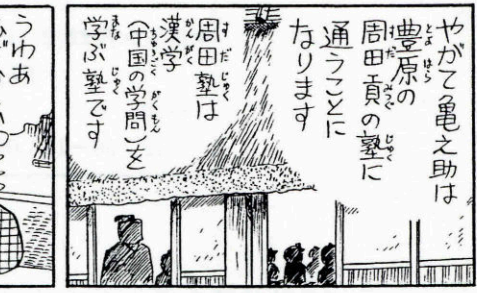 やがて亀之助は
豊原の
周田貢の塾に
通うことに
なります
周田塾は
漢学
(中国の学問)を
学ぶ塾です
うわあ